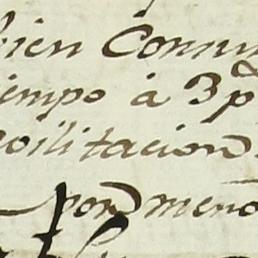 bien Comun
iempo à 3 p
cilitacion
por meno